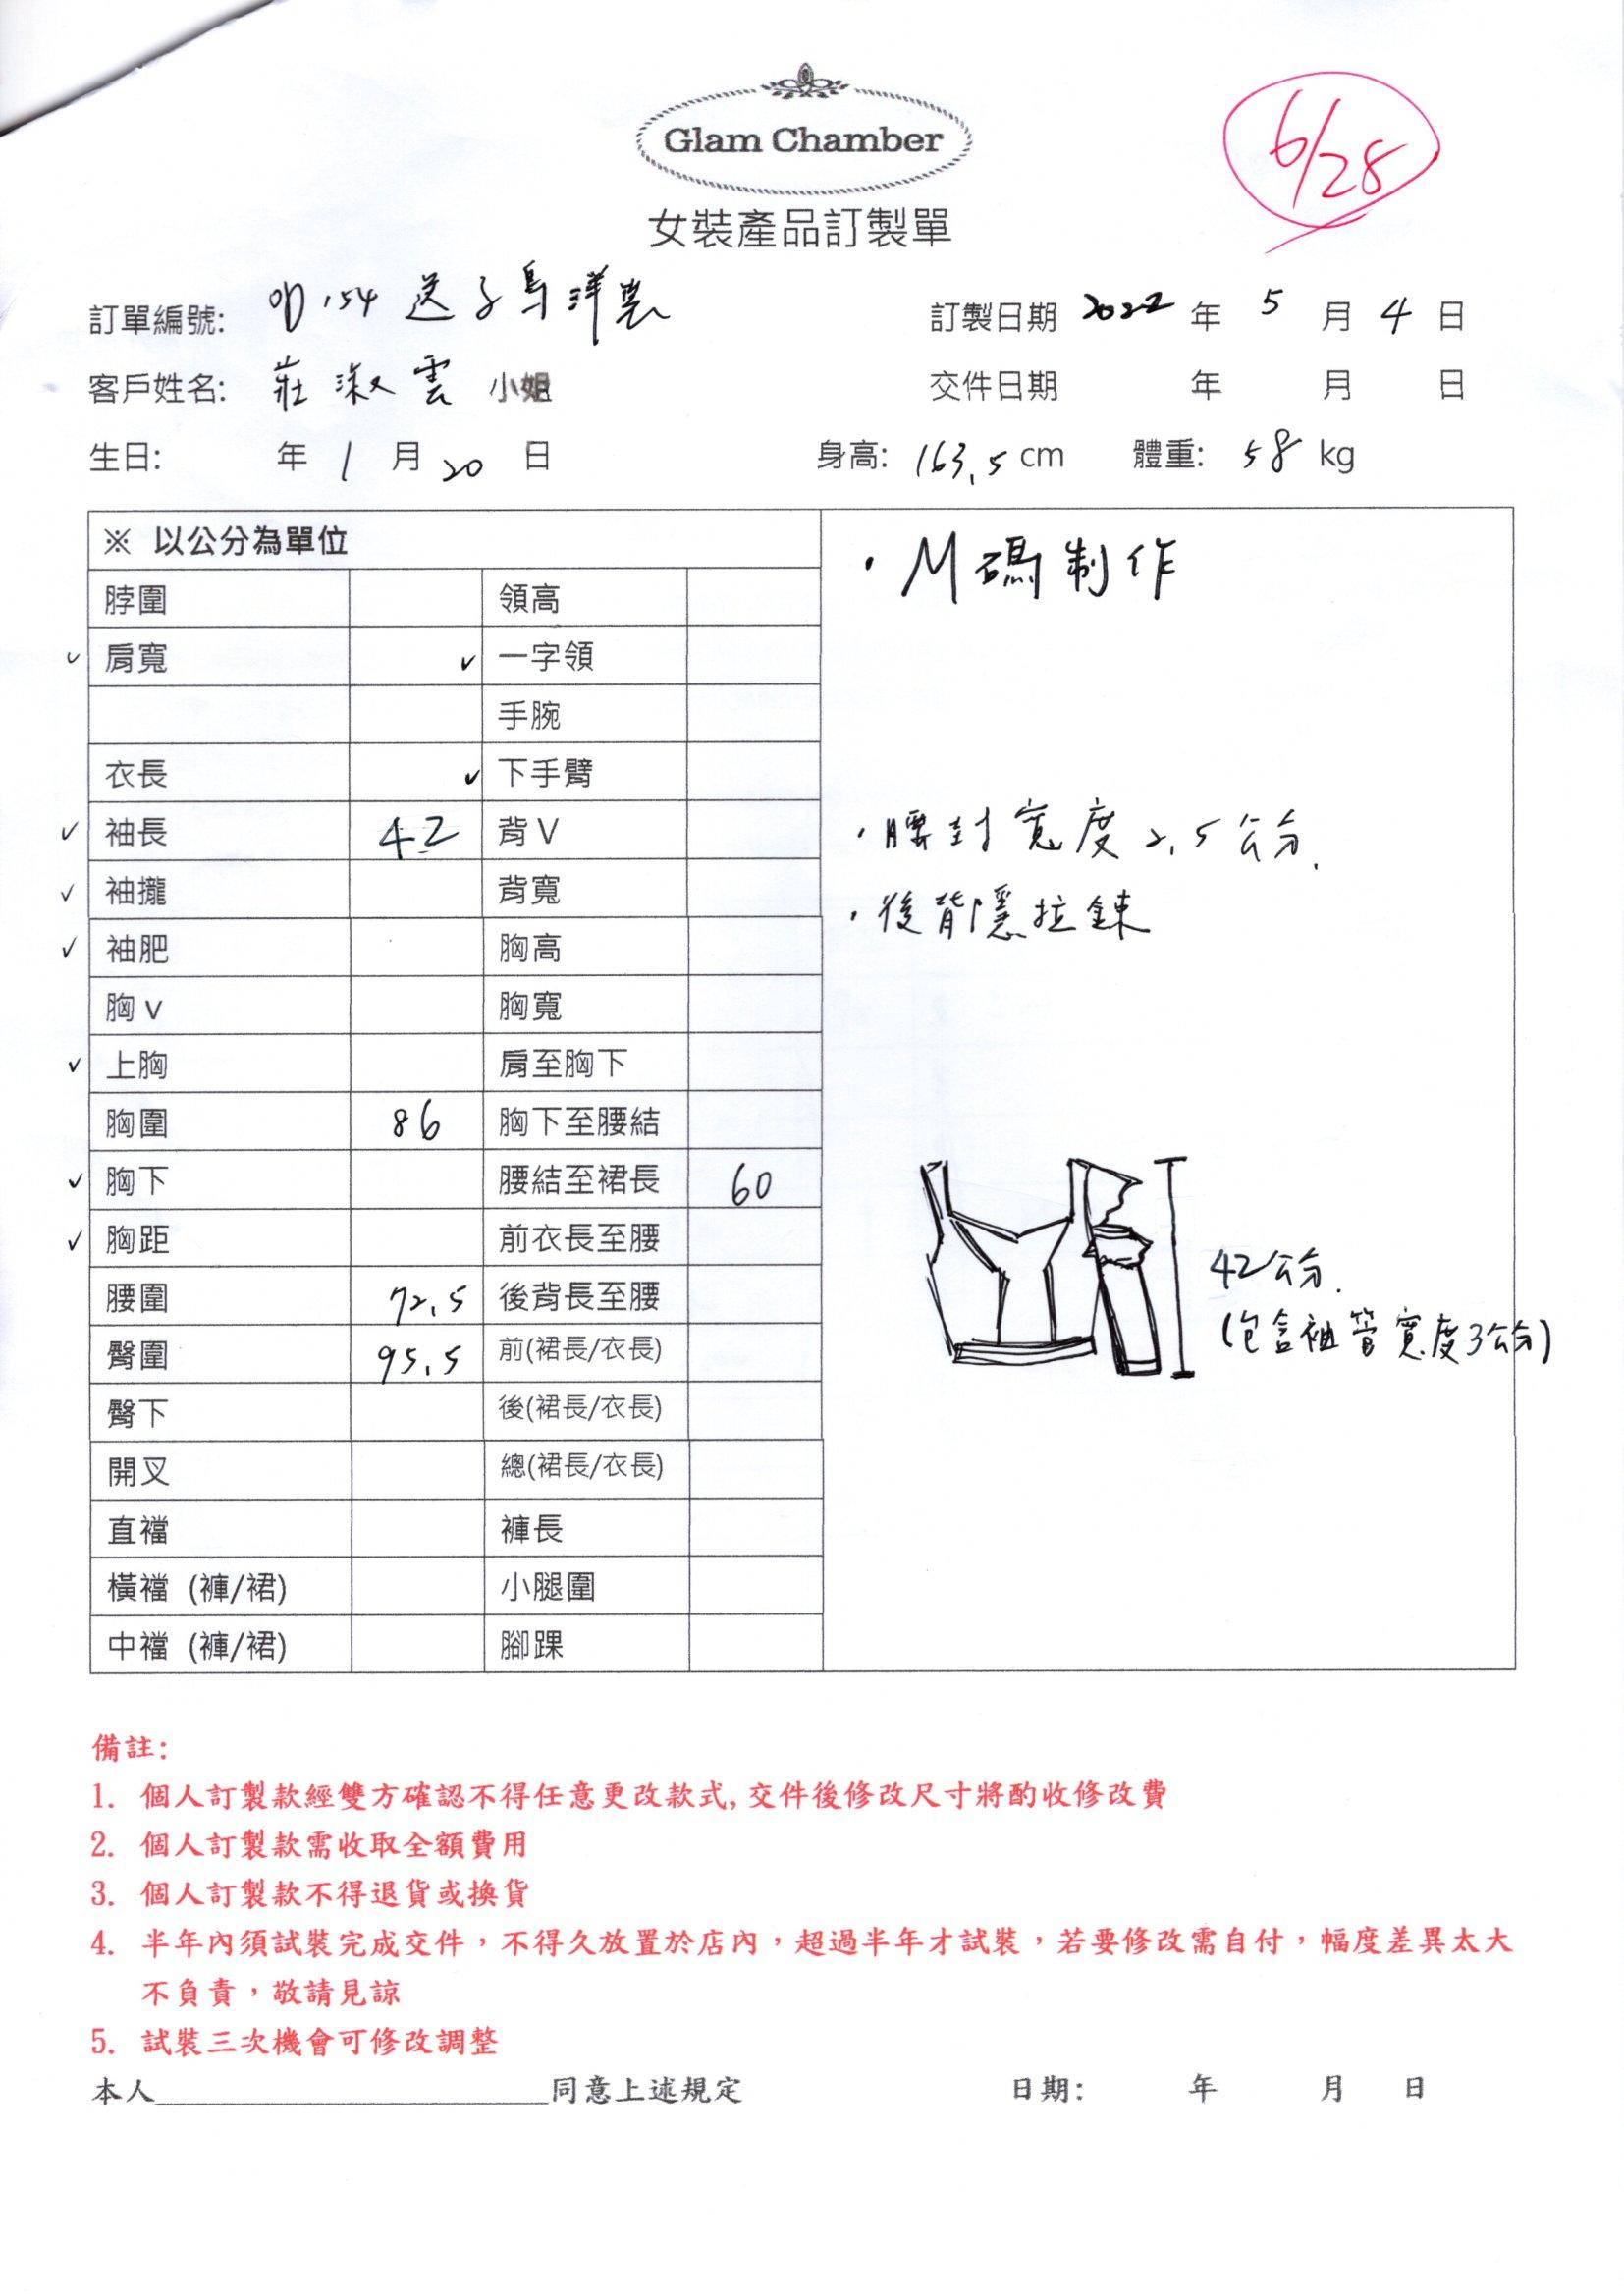 Glam Chamber
6/28
女裝產品訂製單
訂單編號: 送子鳥洋裝 訂製日期 2022 年 5 月 4 日
客戶姓名: 莊淑雲 小姐 交件日期 年 月 日
生日: 年 1 月 20 日 身高: 163.5 cm 體重: 58 kg
※ 以公分為單位
脖圍 領高
✓ 肩寬 ✓ 一字領
手腕
衣長 ✓ 下手臂
✓ 袖長 42 背V
✓ 袖攏 背寬
✓ 袖肥 胸高
胸v 胸寬
✓ 上胸 肩至胸下
胸圍 86 胸下至腰結
✓ 胸下 腰結至裙長 60
✓ 胸距 前衣長至腰
腰圍 72.5 後背長至腰
臀圍 95.5 前(裙長/衣長)
臀下 後(裙長/衣長)
開叉 總(裙長/衣長)
直襠 褲長
橫襠 (褲/裙) 小腿圍
中襠 (褲/裙) 腳踝
・M碼制作
・腰封寬度2.5公分.
・後背隱拉鍊
42公分.
(包含袖管寬度3公分)
備註:
1. 個人訂製款經雙方確認不得任意更改款式,交件後修改尺寸將酌收修改費
2. 個人訂製款需收取全額費用
3. 個人訂製款不得退貨或換貨
4. 半年內須試裝完成交件，不得久放置於店內，超過半年才試裝，若要修改需自付，幅度差異太大
不負責，敬請見諒
5. 試裝三次機會可修改調整
本人________________同意上述規定 日期: 年 月 日